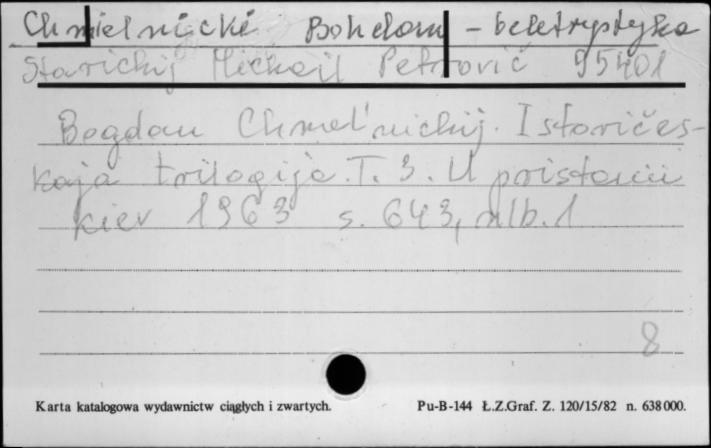 Chmielnicki Bohdan - beletrystyka
Starickij Michail Petrovič 95401
Bogdan Chmel'nickij. Istoričes-
kaja trilogija. T. 3. U pristani
Kiev 1963 s. 643, nlb. 1
8
Karta katalogowa wydawnictw ciągłych i zwartych. Pu-B-144 Ł.Z.Graf. Z. 120/15/82 n. 638000.